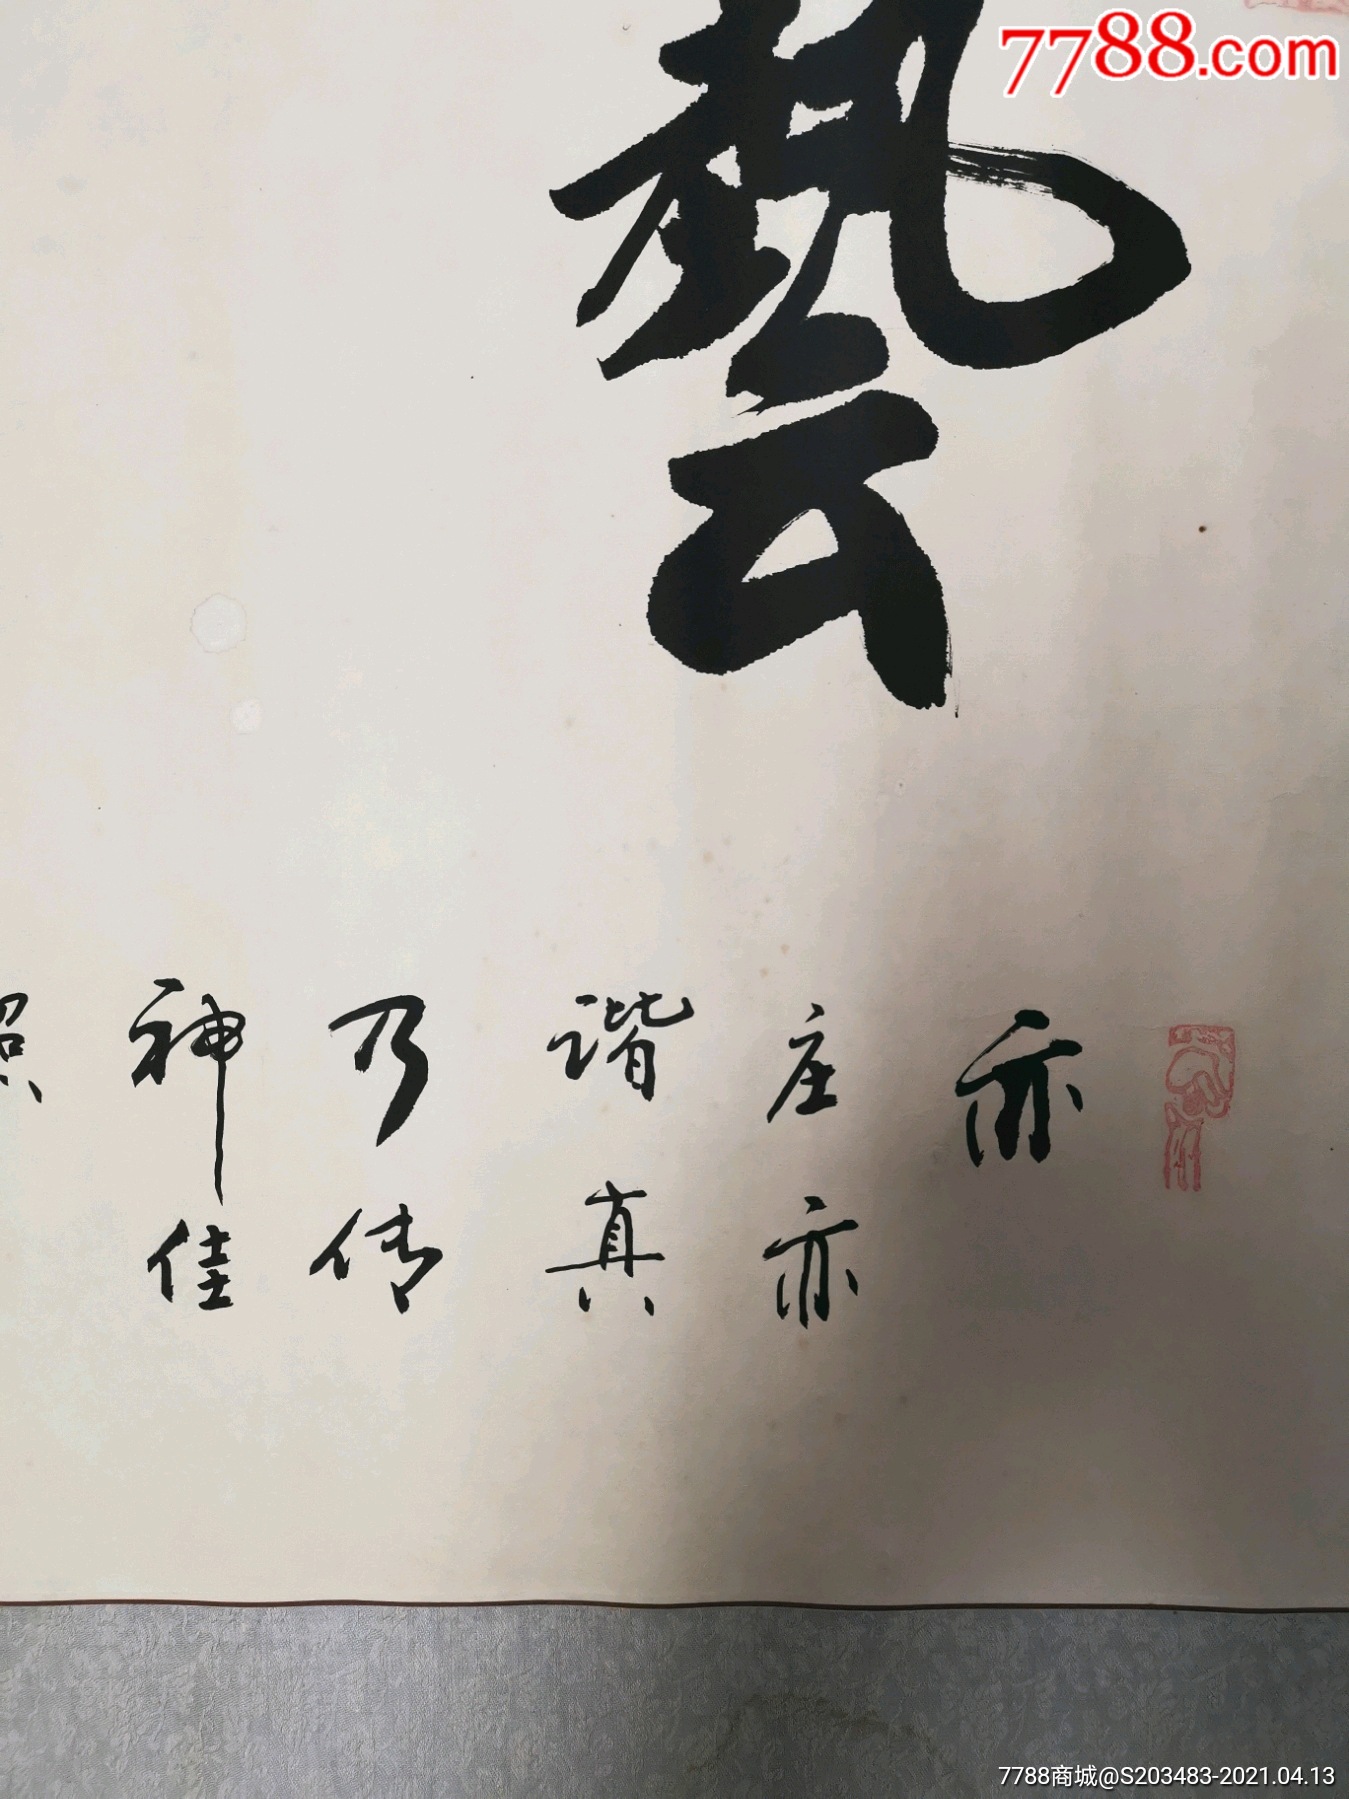 7788.com
藝
亦
庄亦
谐真
乃传
神佳
照
7788商城@S203483-2021.04.13